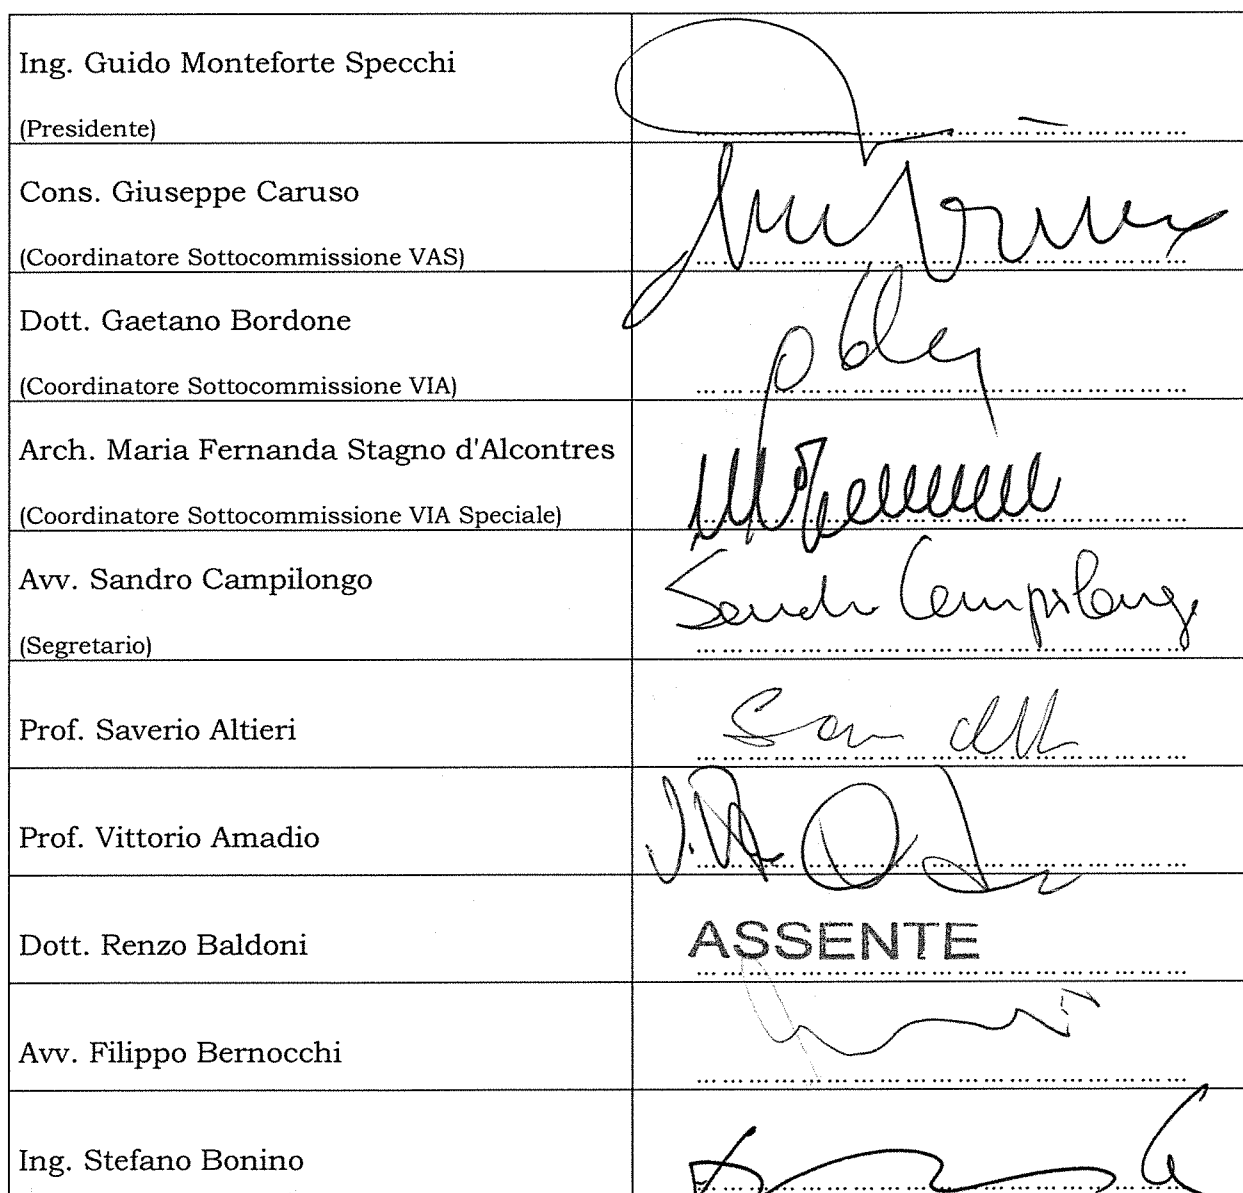 Ing. Guido Monteforte Specchi
(Presidente)
Cons. Giuseppe Caruso
(Coordinatore Sottocommissione VAS)
Dott. Gaetano Bordone
(Coordinatore Sottocommissione VIA)
Arch. Maria Fernanda Stagno d'Alcontres
(Coordinatore Sottocommissione VIA Speciale)
Avv. Sandro Campilongo
Sandro Campilongo
(Segretario)
Prof. Saverio Altieri
Prof. Vittorio Amadio
Dott. Renzo Baldoni
ASSENTE
Avv. Filippo Bernocchi
Ing. Stefano Bonino